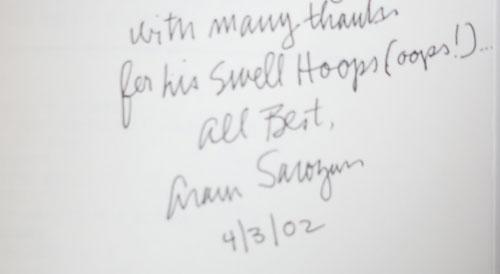 with many thanks
for his Swell Hoops (oops!)...
All Best,
Aram Saroyan
4/3/02